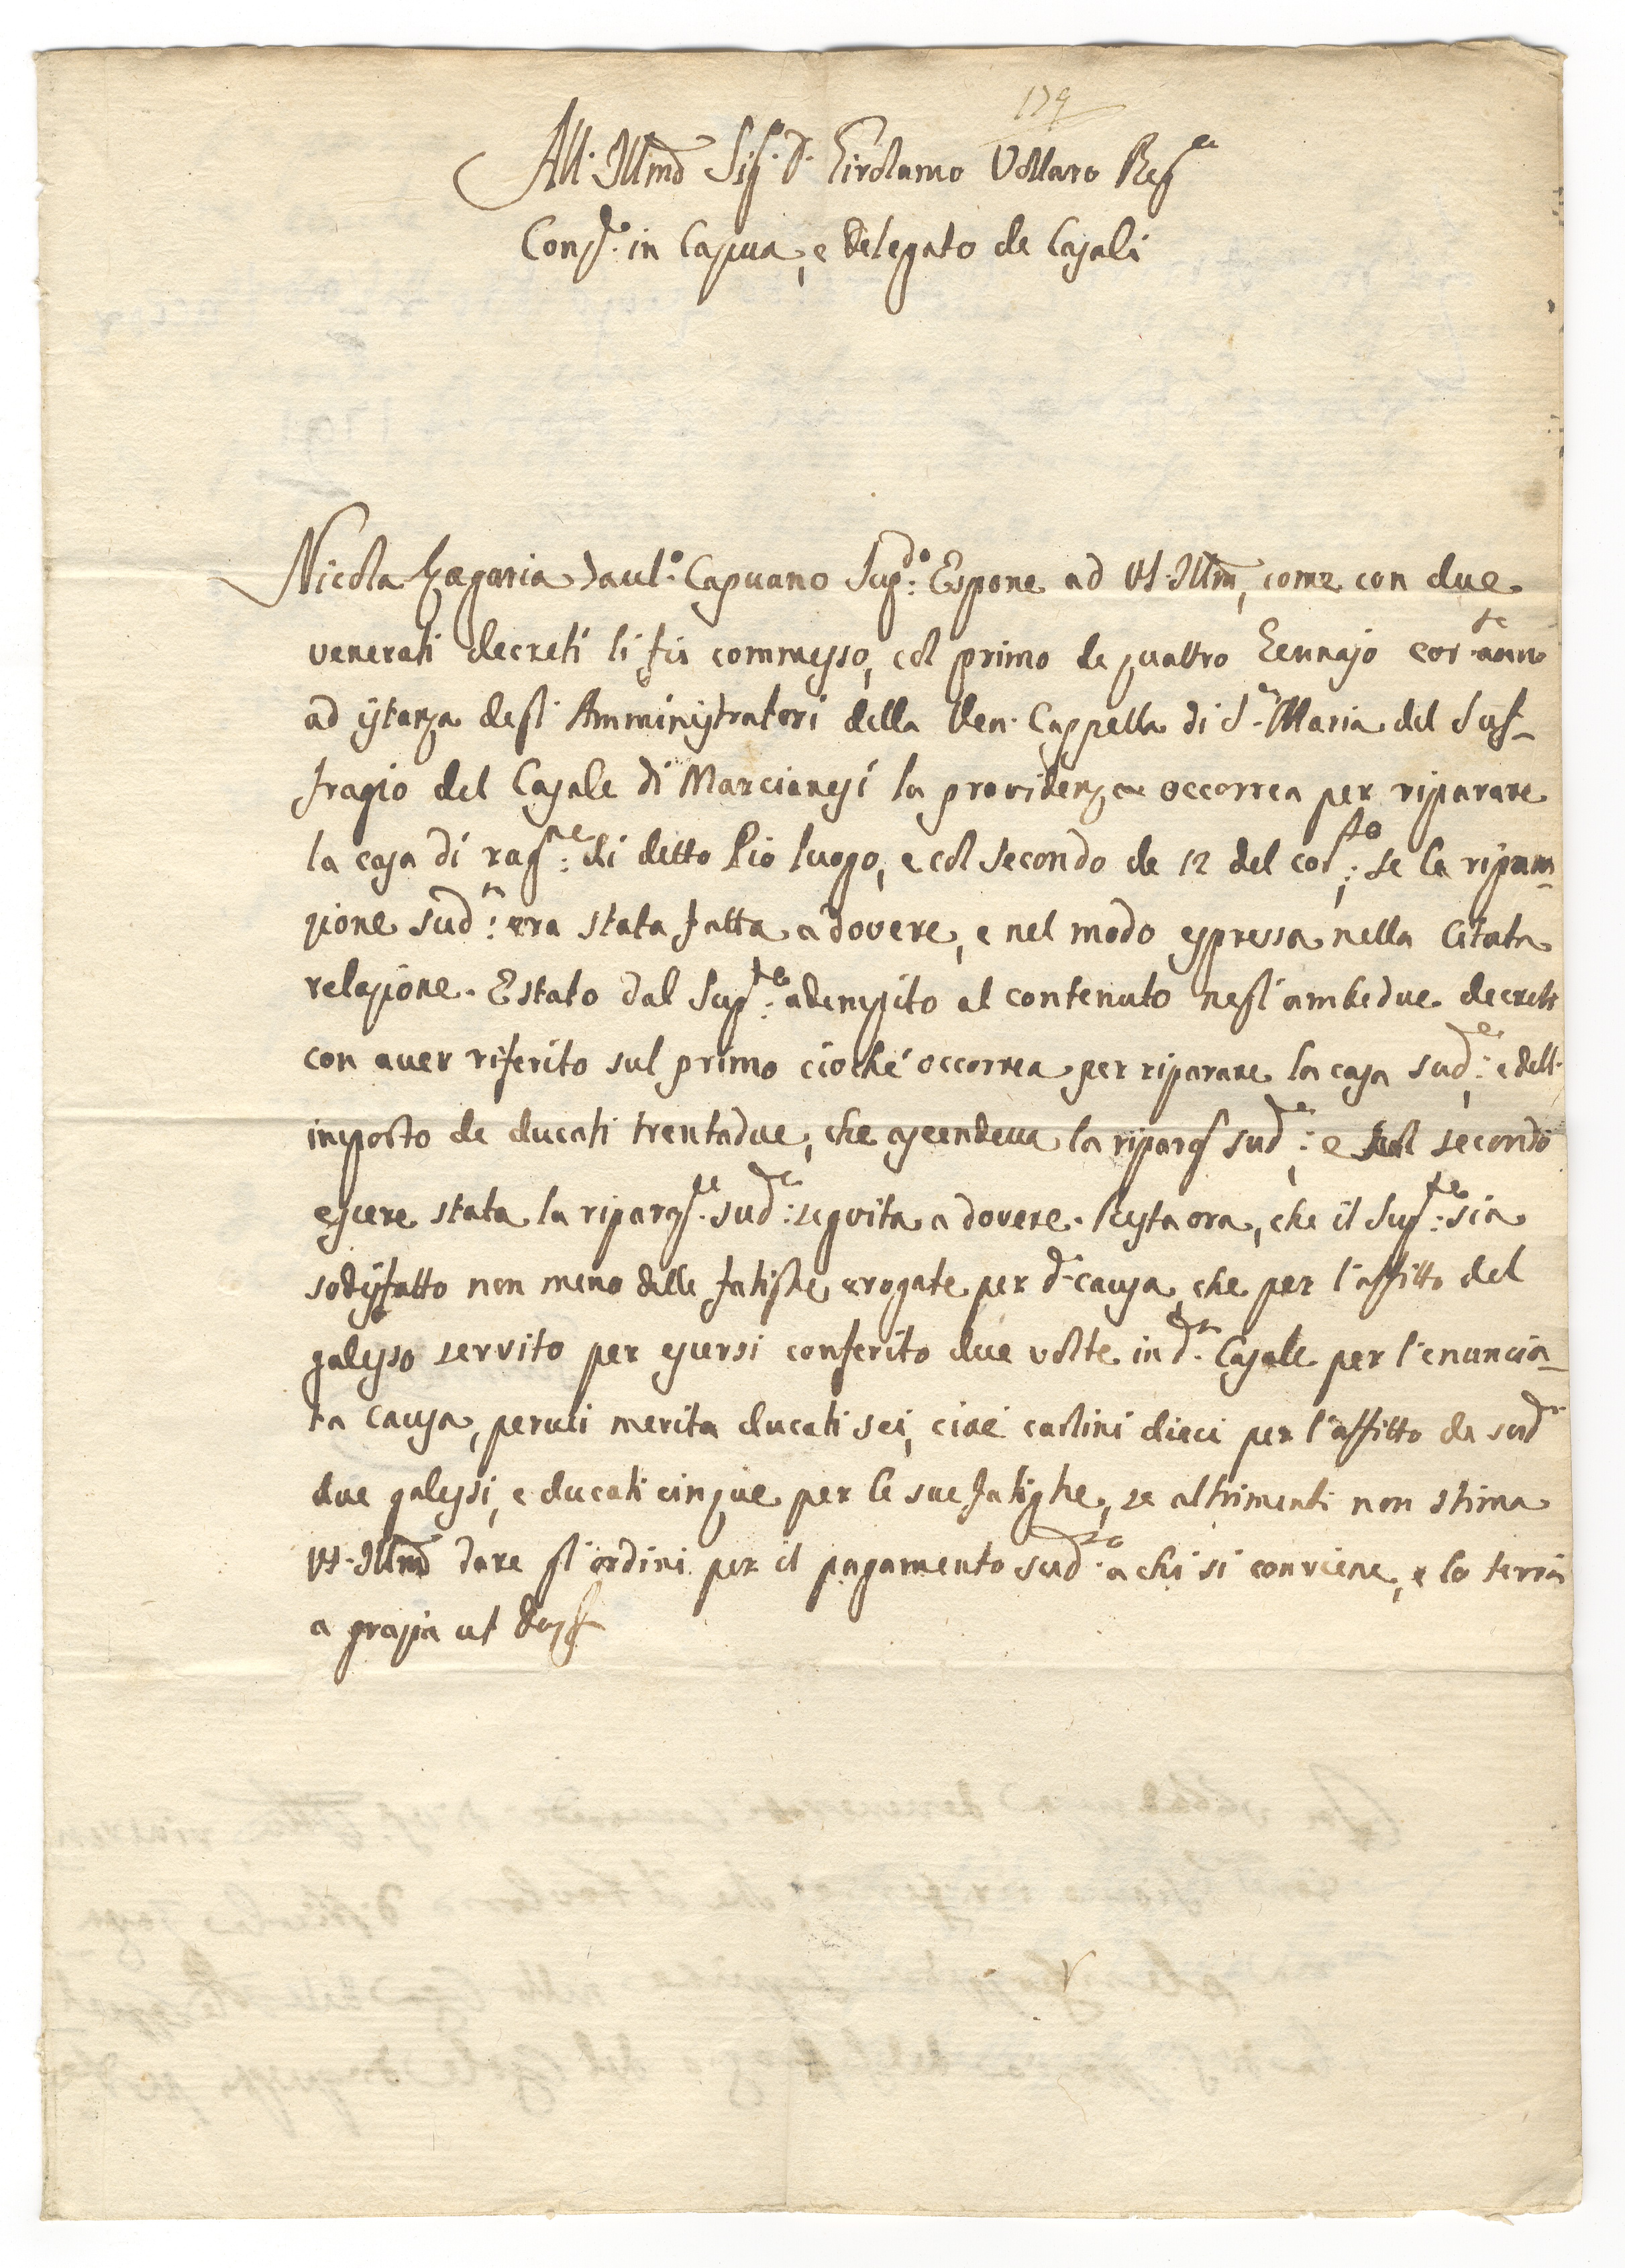 All' Illmo Sig.r D. Girolamo Vollaro Reg.a
Cons.o in Capua, e Delegato de Casali
Nicola Zagaria Taul.o Capuano Sup.do Espone ad VS. Illma, come con due
venerati decreti li fù commesso, col primo de quattro Gennajo cor.te anno
ad istanza degl' Amministratori della Ven. Cappella di S.a Maria del Suf-
fragio del Casale di Marcianesi la providenza occorrea per riparare
la casa di rag.ne di detto Pio luogo, e col secondo de 12 del cor.te, se la ripara-
zione sud.a era stata fatta a dovere, e nel modo espressa nella Citata
relazione. E stato dal Sup.te adempito al contenuto negl' ambedue decreti
con aver riferito sul primo ciocché occorrea per riparare la casa sud.a, e dell'
importo de ducati trentadue, che ascendeva la riparaz. sud.a, e sul secondo
essere stata la riparaz.ne sud.a seguita a dovere. Resta ora, che il Sup.te sia
sodisfatto non meno delle fatighe erogate per d.a causa, che per l'affitto del
galesso servito per essersi conferito due volte in d.o Casale per l'enuncia-
ta causa, per cui merita ducati sei, cioè carlini dieci per l'affitto de sud.i
due galessi, e ducati cinque per le sue fatighe, se altrimenti non stima
VS. Illma dare gl'ordini per il pagamento sud.o a chi si conviene, e lo terrà
a grazia ut Deus